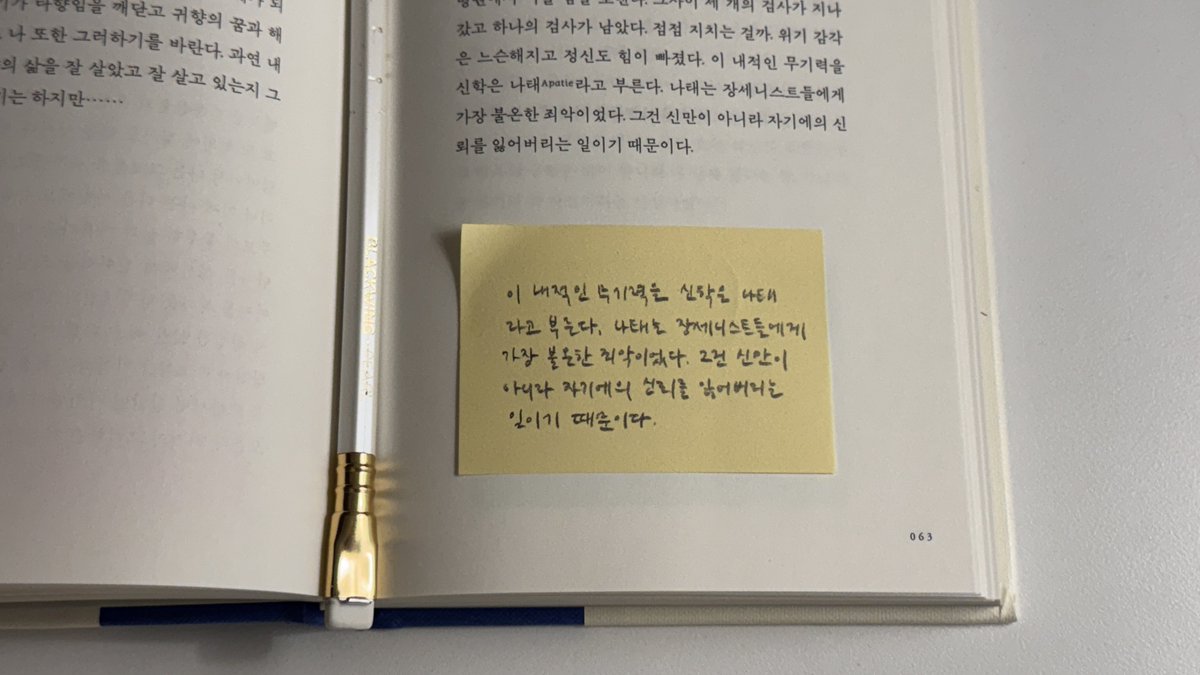 가 타향임을 깨닫고 귀향의 꿈과 해
나 또한 그러하기를 바란다. 과연 내
의 삶을 잘 살았고 잘 살고 있는지 그
기는 하지만……
갔고 하나의 검사가 남았다. 점점 지치는 걸까. 위기 감각
은 느슨해지고 정신도 힘이 빠졌다. 이 내적인 무기력을
신학은 나태Apatie라고 부른다. 나태는 장세니스트들에게
가장 불온한 죄악이었다. 그건 신만이 아니라 자기에의 신
뢰를 잃어버리는 일이기 때문이다.
이 내적인 무기력을 신학은 나태
라고 부른다. 나태는 장세니스트들에게
가장 불온한 죄악이었다. 그건 신만이
아니라 자기에의 신뢰를 잃어버리는
일이기 때문이다.
BLACKWING
063